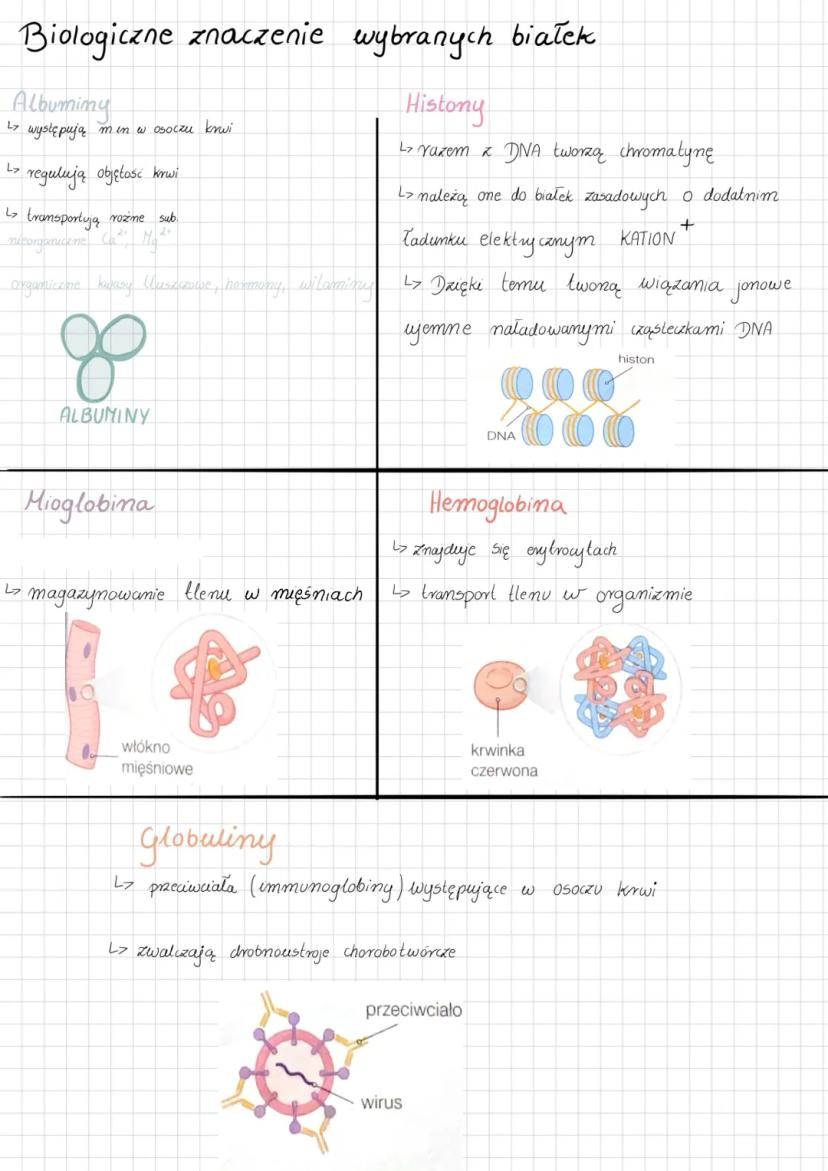 Biologiczne znaczenie wybranych białek
Albuminy
↳ występują m.in w osoczu krwi
↳ regulują objętość krwi
↳ transportują rożne sub.
nieorganiczne Ca²⁺, Mg²⁺
organiczne kwasy tłuszczowe, hormony, witaminy
ALBUMINY
Histony
↳ razem z DNA tworzą chromatynę
↳ należą one do białek zasadowych o dodatnim
ładunku elektrycznym KATION⁺
↳ Dzięki temu tworzą wiązania jonowe
ujemne naładowanymi cząsteczkami DNA
histon
DNA
Mioglobina
↳ magazynowanie tlenu w mięśniach
włókno
mięśniowe
Hemoglobina
↳ znajduje się erytrocytach
↳ transport tlenu w organizmie
krwinka
czerwona
Globuliny
↳ przeciwciała (immunoglobiny) występujące w osoczu krwi
↳ zwalczają drobnoustroje chorobotwórcze
przeciwciało
wirus